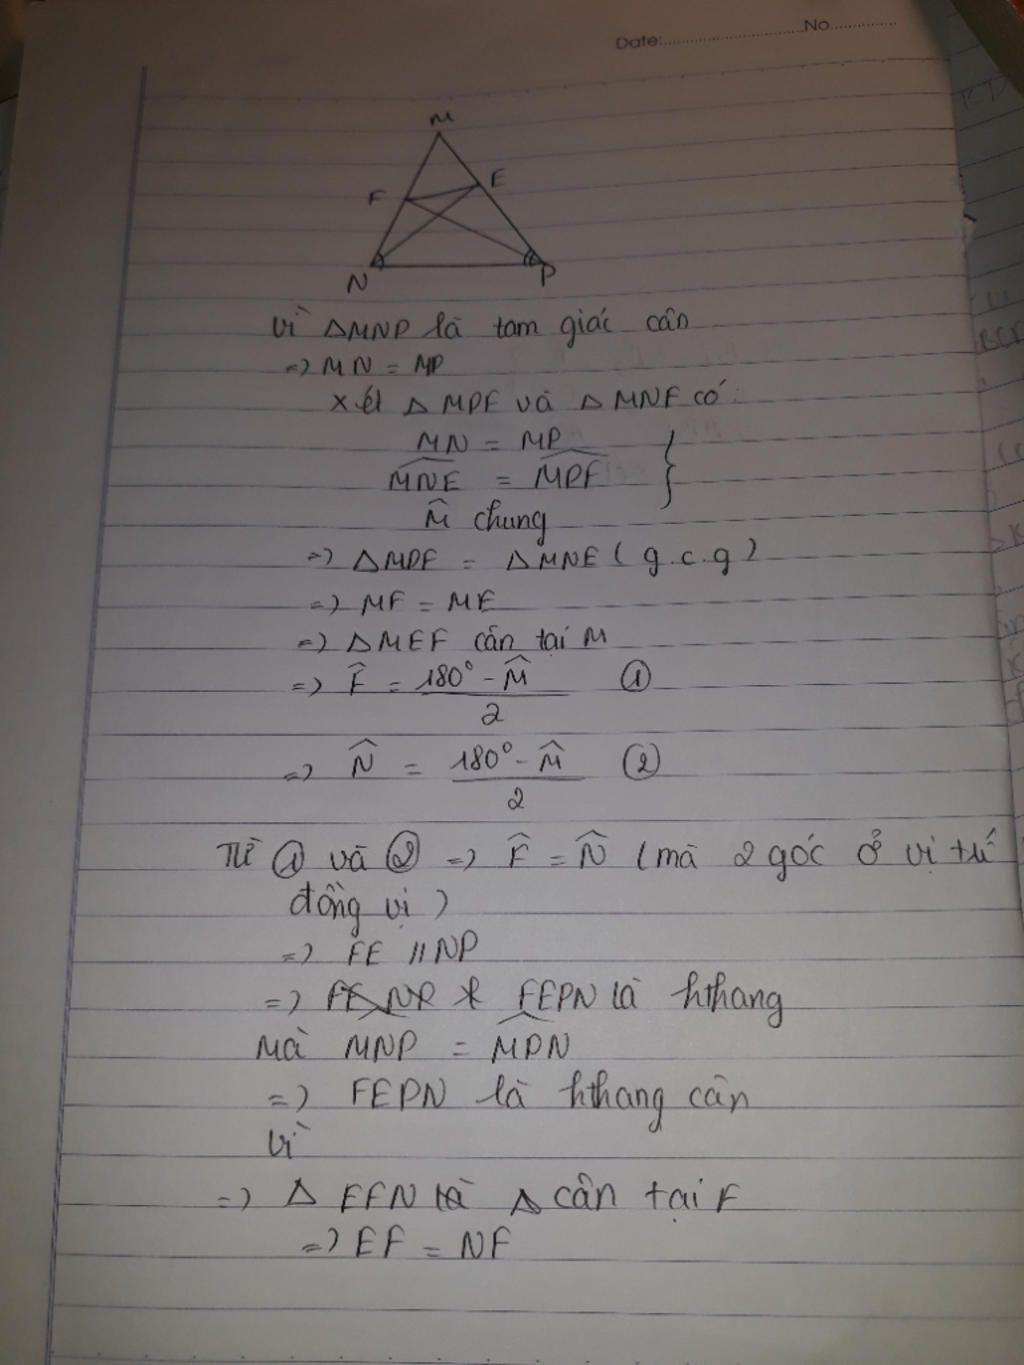 Date: No
M
F E
N P
Vì △MNP là tam giác cân
=> MN = MP
Xét △ MPF và △ MNE có:
MN = MP
MNE = MPF
M̂ chung
=> △MPF = △MNE ( g.c.g )
=> MF = ME
=> △MEF cân tại M
=> F̂ = 180° - M̂ / 2 ①
=> N̂ = 180° - M̂ / 2 ②
Từ ① và ② => F̂ = N̂ ( mà 2 góc ở vị trí
đồng vị )
=> FE // NP
=> FEPN là hthang
Mà MNP = MPN
=> FEPN là hthang cân
Vì
=> △ EFN là △ cân tại F
=> EF = NF